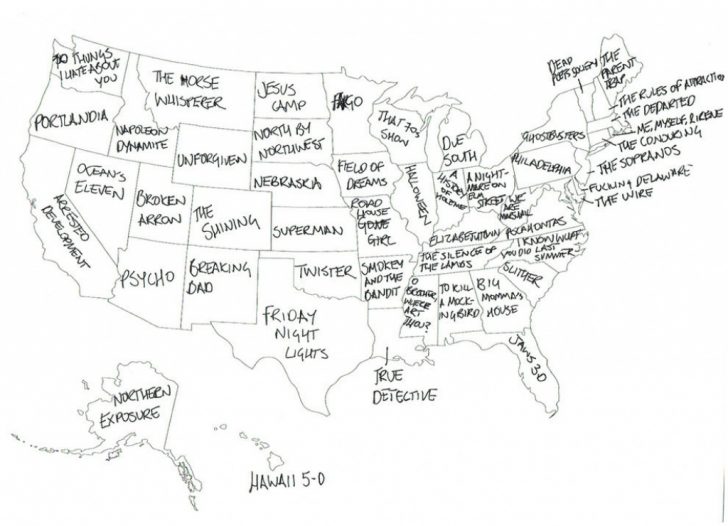 10 THINGS
I HATE ABOUT
YOU
THE HORSE
WHISPERER
JESUS
CAMP
FARGO
DEAD
POETS SOCIETY
THE
PARENT
TRAP
PORTLANDIA
NAPOLEON
DYNAMITE
UNFORGIVEN
NORTH BY
NORTHWEST
THAT 70s
SHOW
DUE
SOUTH
GHOSTBUSTERS
THE RULES OF ATTRACTION
THE DEPARTED
ME, MYSELF, & IRENE
THE CONJURING
THE SOPRANOS
FUCKING DELAWARE
THE WIRE
OCEAN'S
ELEVEN
ARRESTED
DEVELOPMENT
BROKEN
ARROW
THE
SHINING
NEBRASKA
FIELD OF
DREAMS
HALLOWEEN
A
HISTORY
OF
VIOLENCE
A NIGHT-
MARE ON
ELM
STREET
PHILADELPHIA
WE
ARE
MARSHALL
SUPERMAN
ROAD
HOUSE
GONE
GIRL
ELIZABETHTOWN
POCAHONTAS
PSYCHO
BREAKING
BAD
TWISTER
SMOKEY
AND THE
BANDIT
THE SILENCE OF
THE LAMBS
I KNOW WHAT
YOU DID LAST
SUMMER
SLITHER
FRIDAY
NIGHT
LIGHTS
O
BROTHER,
WHERE
ART
THOU?
TO KILL
A MOCK-
INGBIRD
BIG
MOMMA'S
HOUSE
JAWS 3-D
TRUE
DETECTIVE
NORTHERN
EXPOSURE
HAWAII 5-O